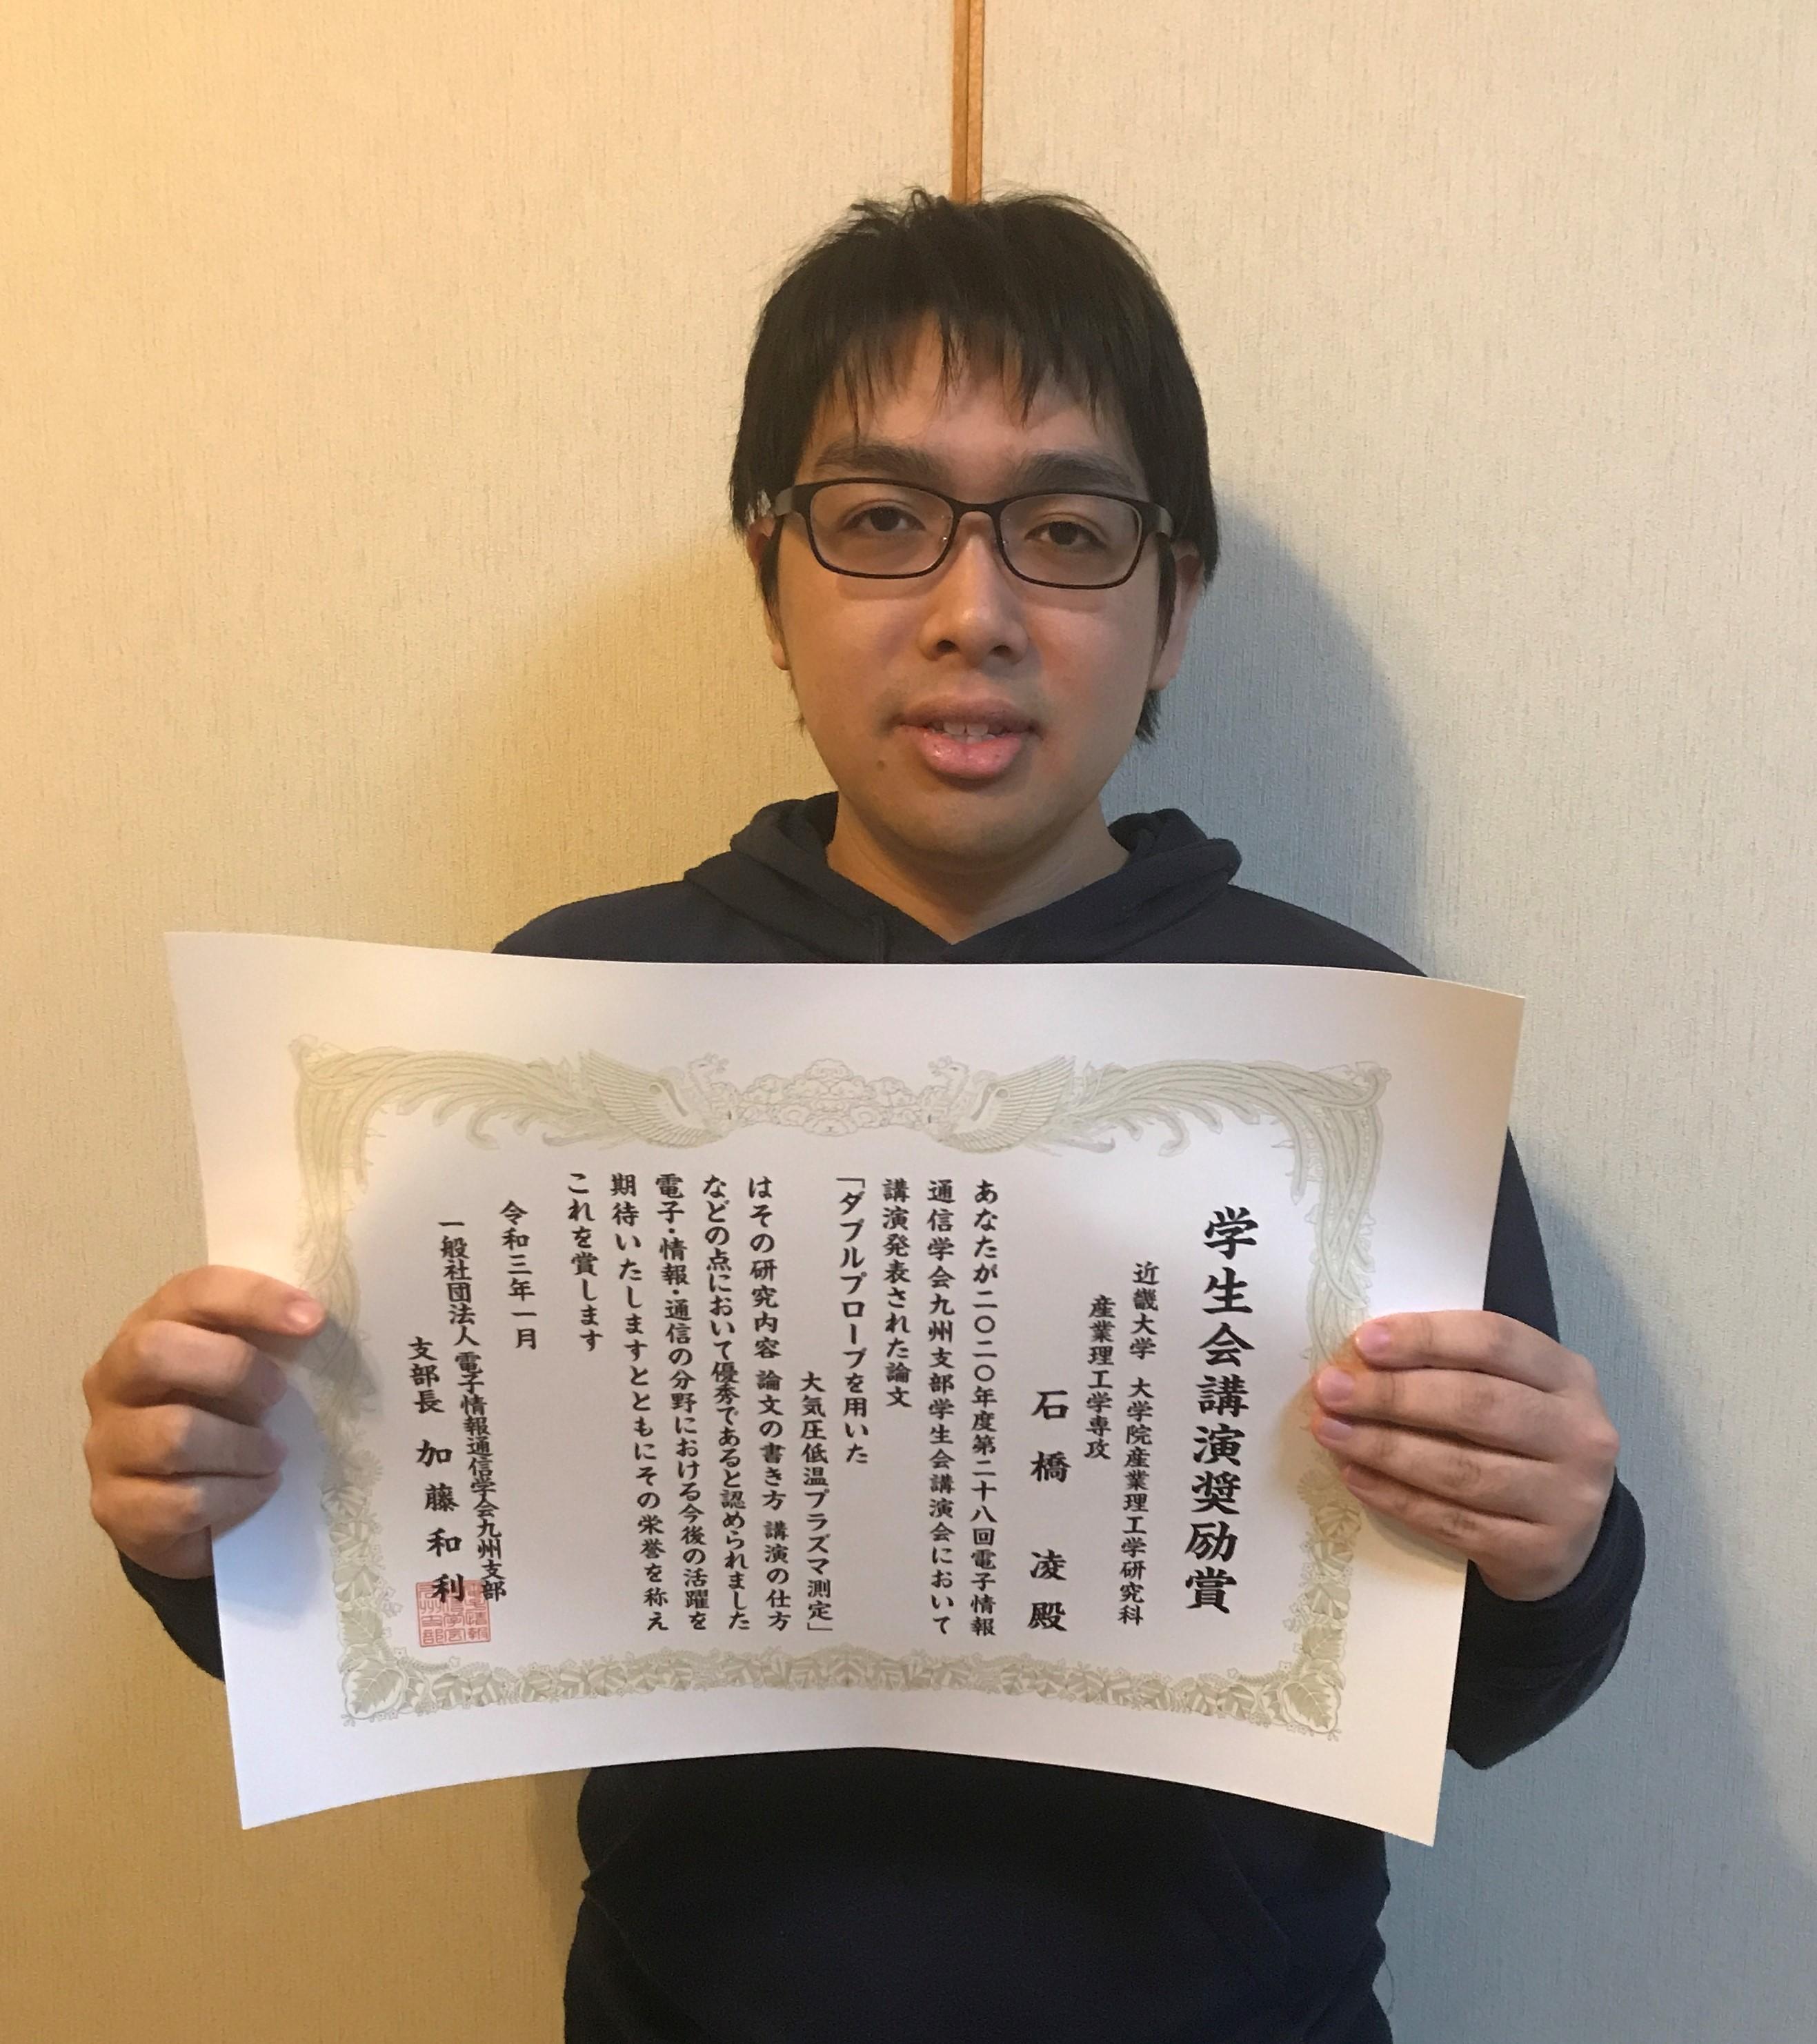 学生会講演奨励賞
近畿大学 大学院産業理工学研究科
産業理工学専攻
石橋 凌殿
あなたが二〇二〇年度第二十八回電子情報
通信学会九州支部学生会講演会において
講演発表された論文
「ダブルプローブを用いた
大気圧低温プラズマ測定」
はその研究内容 論文の書き方 講演の仕方
などの点において優秀であると認められました
電子・情報・通信の分野における今後の活躍を
期待いたしますとともにその栄誉を称え
これを賞します
令和三年一月
一般社団法人 電子情報通信学会九州支部
支部長 加藤和利